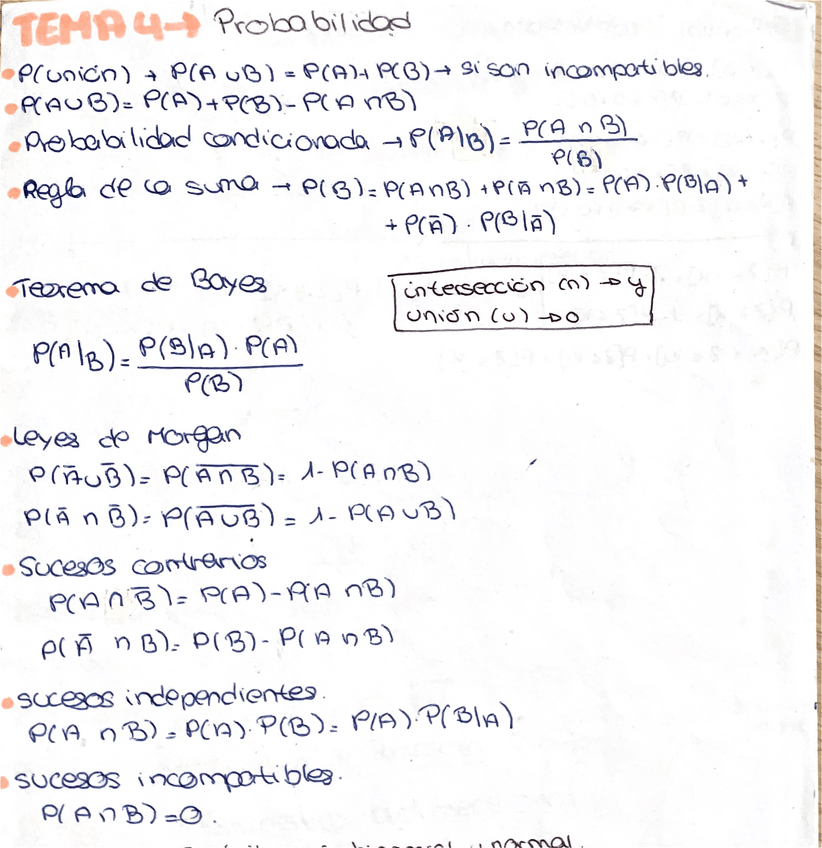 TEMA 4→ Probabilidad
• P(unión) → P(A ∪ B) = P(A) + P(B) → si son incompatibles.
• P(A∪B) = P(A) + P(B) - P(A ∩ B)
• Probabilidad condicionada → P(A|B) = P(A ∩ B) / P(B)
• Regla de la suma → P(B) = P(A∩B) + P(Ā ∩B) = P(A) · P(B|A) +
+ P(Ā) · P(B|Ā)
• Teorema de Bayes
intersección (∩) → y
Unión (∪) → o
P(A|B) = P(B|A) · P(A) / P(B)
• Leyes de Morgan
P(Ā∪B̅) = P(A̅ ̅∩̅ ̅B̅) = 1 - P(A∩B)
P(Ā ∩ B̅) = P(A̅ ̅∪̅ ̅B̅) = 1 - P(A∪B)
• Sucesos contrarios
P(A∩B̅) = P(A) - P(A ∩B)
P(Ā ∩ B) = P(B) - P(A ∩B)
• sucesos independientes.
P(A ∩B) = P(A) · P(B) = P(A) · P(B|A)
• sucesos incompatibles.
P(A∩B) = 0.
normal.